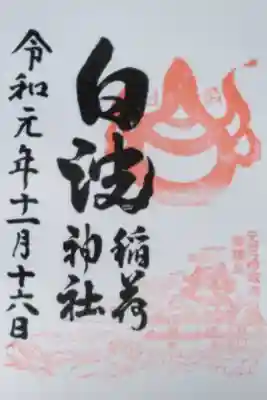 白波
稲荷
神社
令和元年十一月十六日